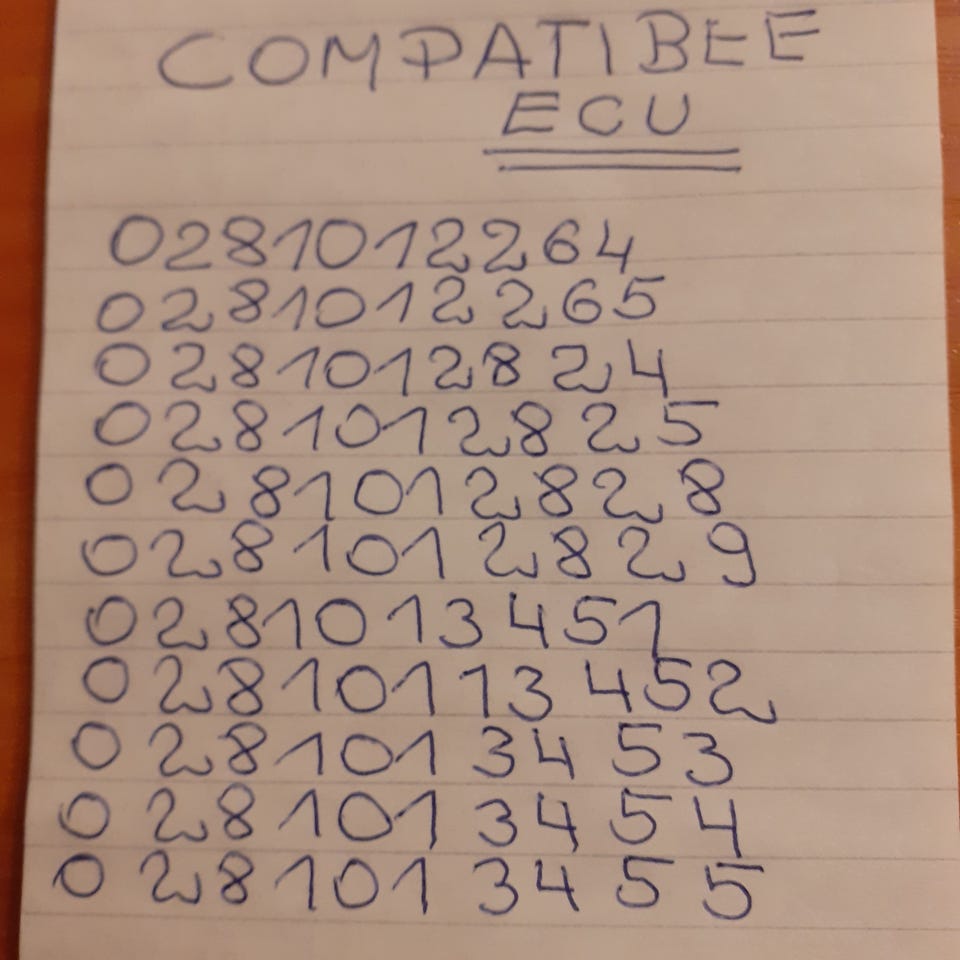 COMPATIBEE
ECU
0281012264
0281012265
0281012824
0281012825
0281012828
0281012829
0281013451
02810113452
0281013453
0281013454
0281013455